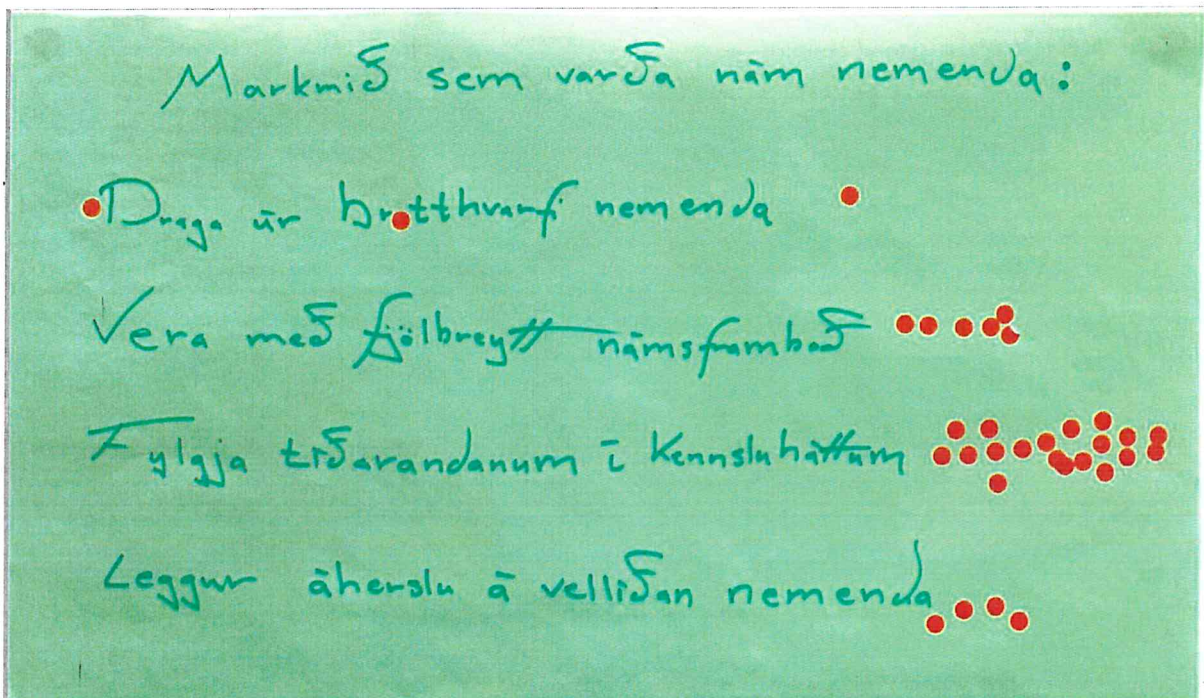 Markmið sem varða nám nemenda:
Draga úr brotthvarfi nemenda
Vera með fjölbreytt námsframboð
Fylgja tíðarandanum í kennsluháttum
Leggur áherslu á vellíðan nemenda